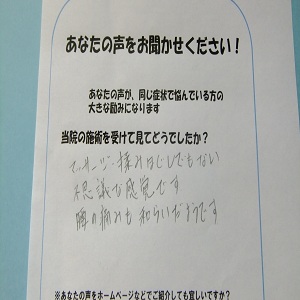 あなたの声をお聞かせください！
あなたの声が、同じ症状で悩んでいる方の
大きな励みになります
当院の施術を受けて見てどうでしたか？
マッサージ・揉みほぐしでもない
不思議な感覚です
腕の痛みも和らいだようです
※あなたの声をホームページなどでご紹介しても宜しいですか？